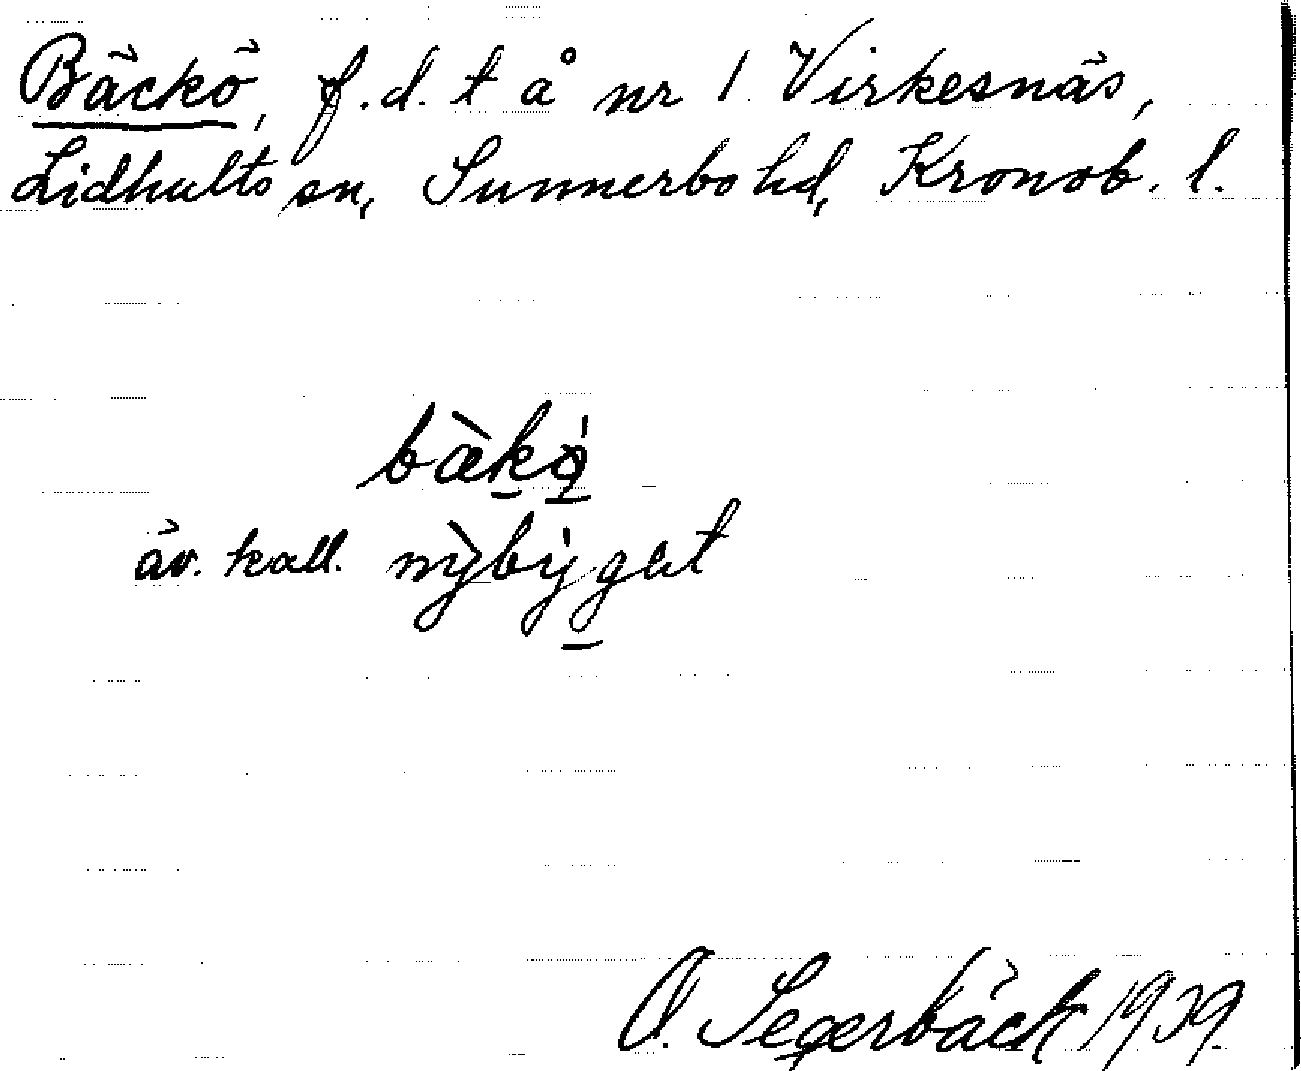 Bäckö, f.d. t å nr 1 Virkesnäs,
Lidhults sn, Sunnerbo hd, Kronob. l.
bækö
äv. kall. nỳbýgət
O. Segerbäck 1939